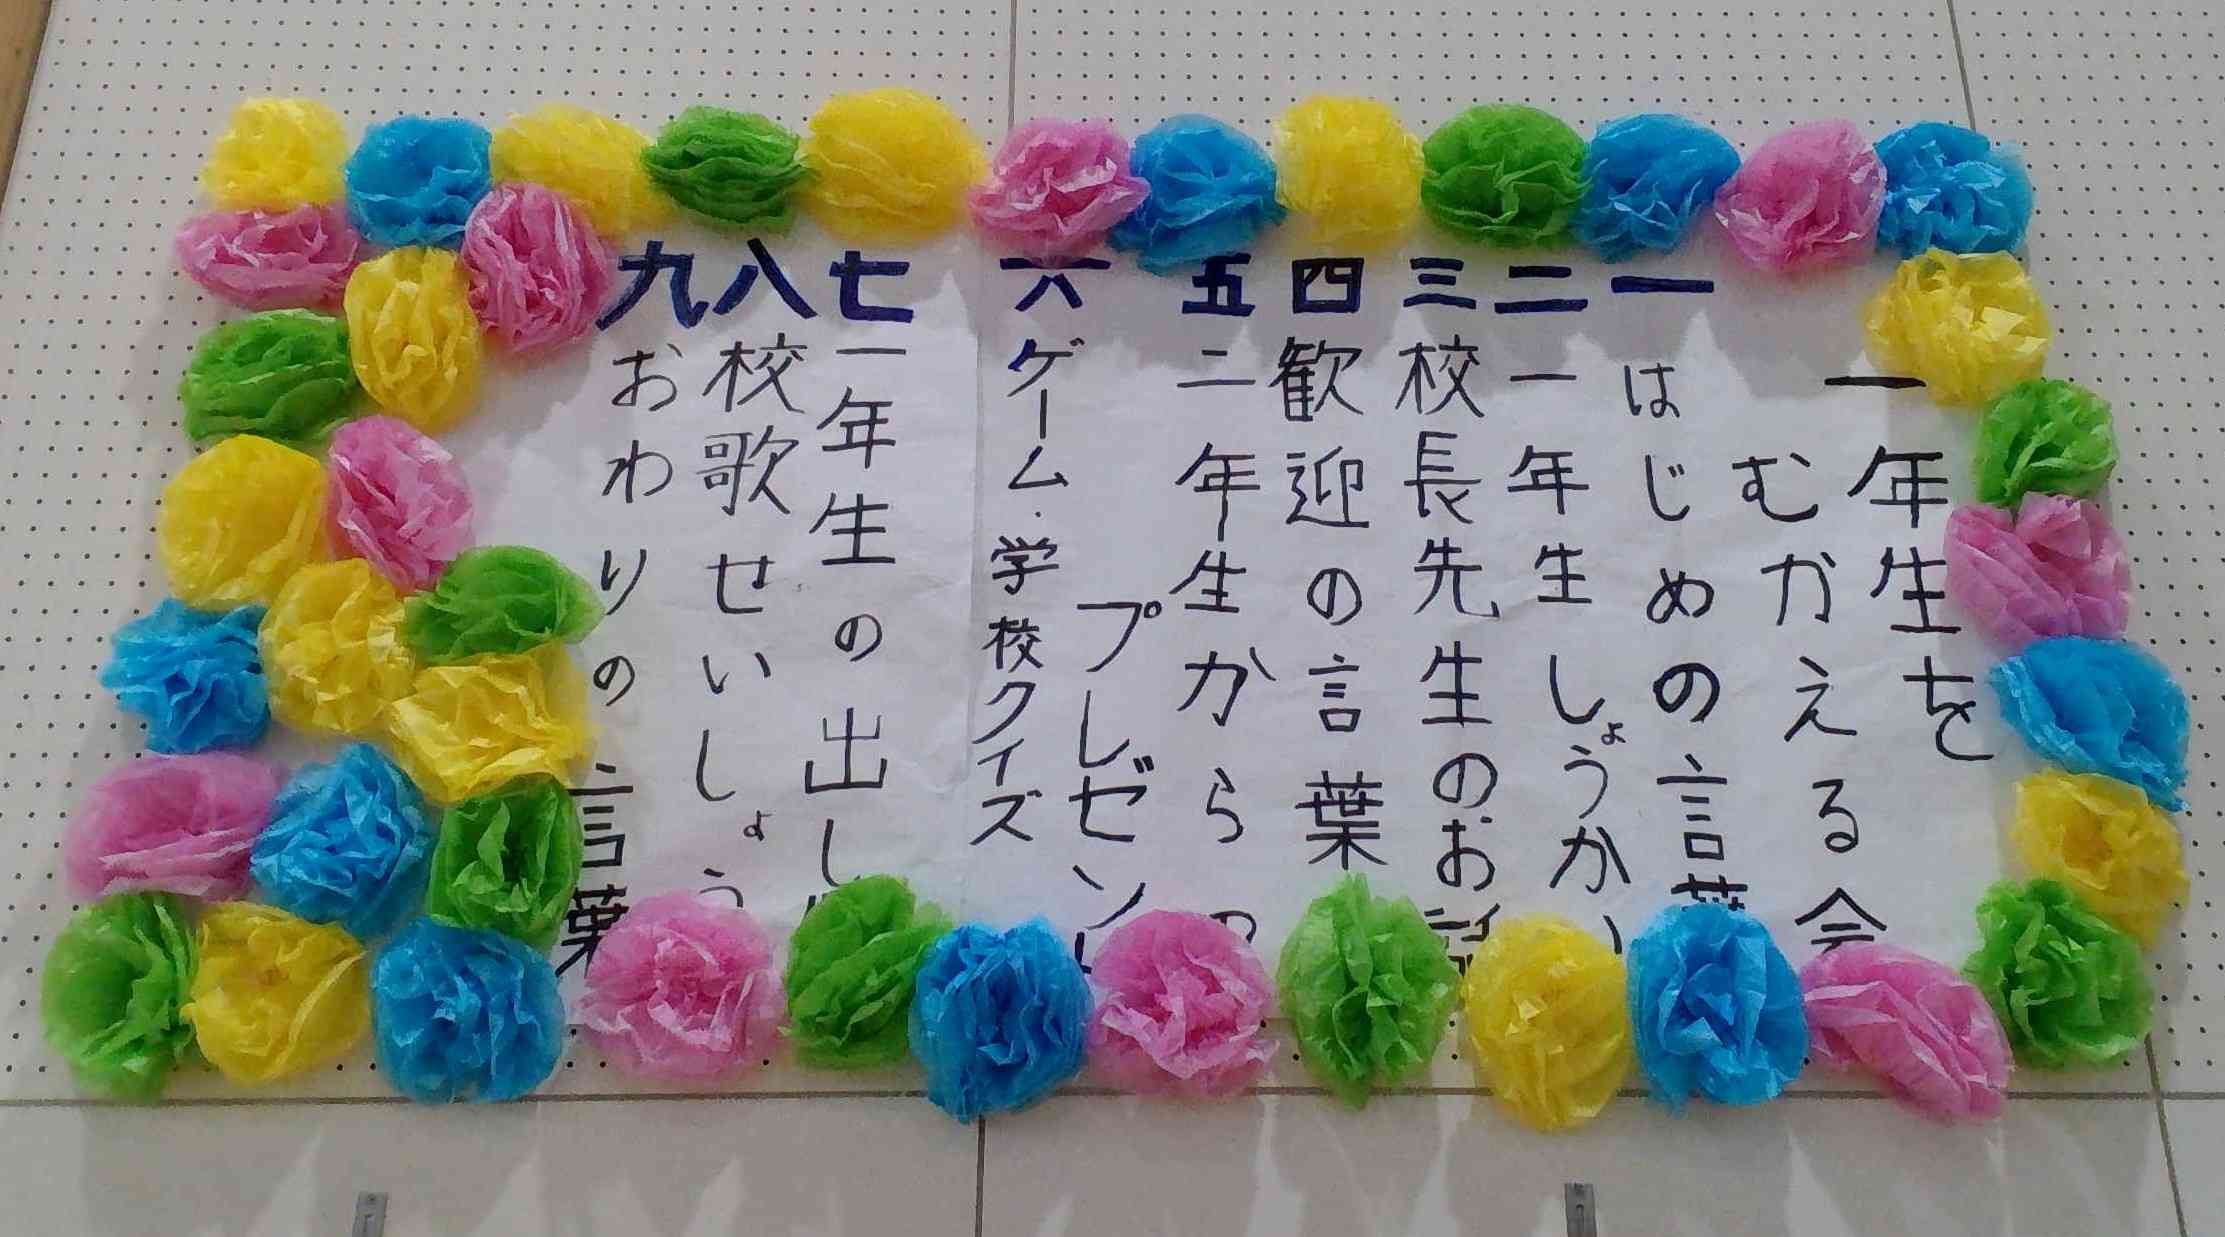 一年生を
むかえる会
一 はじめの言葉
二 一年生しょうかい
三 校長先生のお話
四 歓迎の言葉
五 二年生からの
プレゼント
六 ゲーム・学校クイズ
七 一年生の出し物
八 校歌せいしょう
九 おわりの言葉